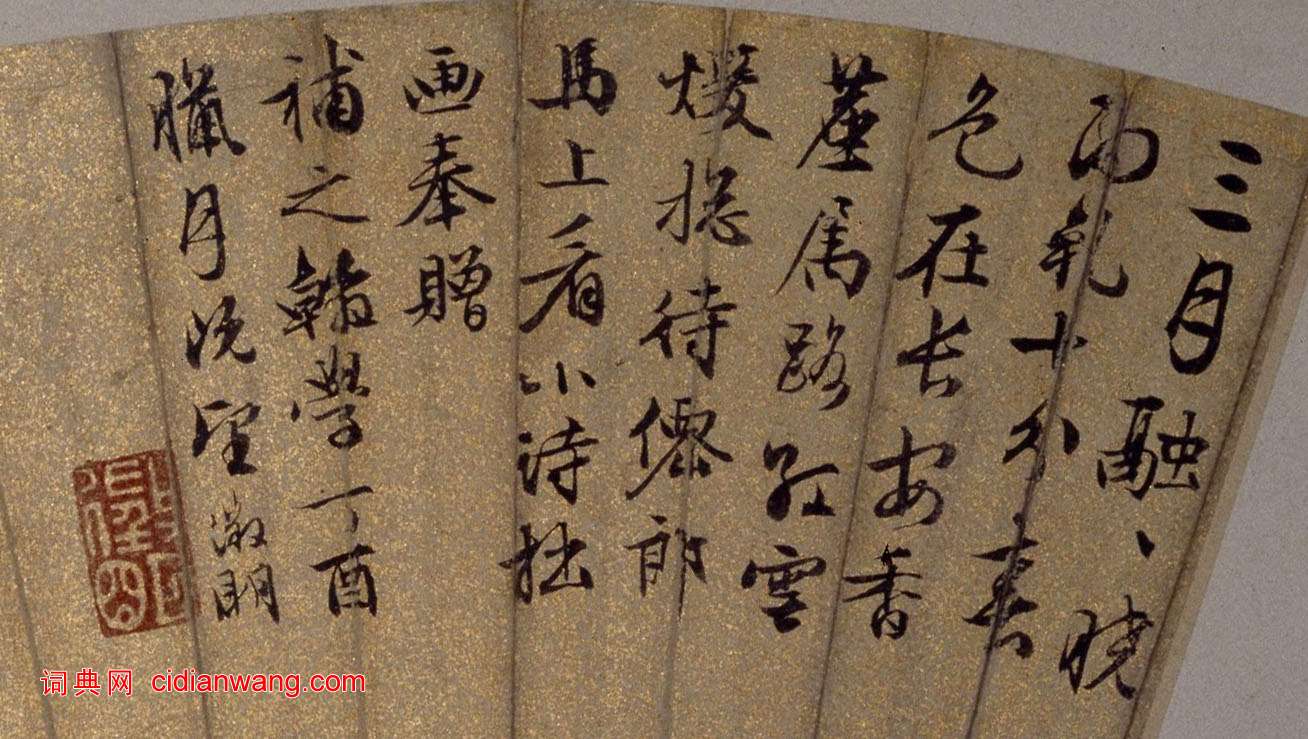 三月融、曉
雨乾十分春
色在長安香
塵属路紅雲
煖揔待僊郎
馬上看小詩拙
画奉贈
補之翰學丁酉
臘月既望 徵明
词典网 cidianwang.com